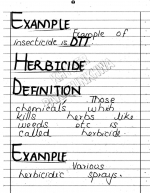 EXAMPLE
Example of
insecticide is DTT.
HERBICIDE
DEFINITION
Those
chemicals which
kills herbs like
weeds etc is
called herbicide.
EXAMPLE
Various
herbicidic sprays.